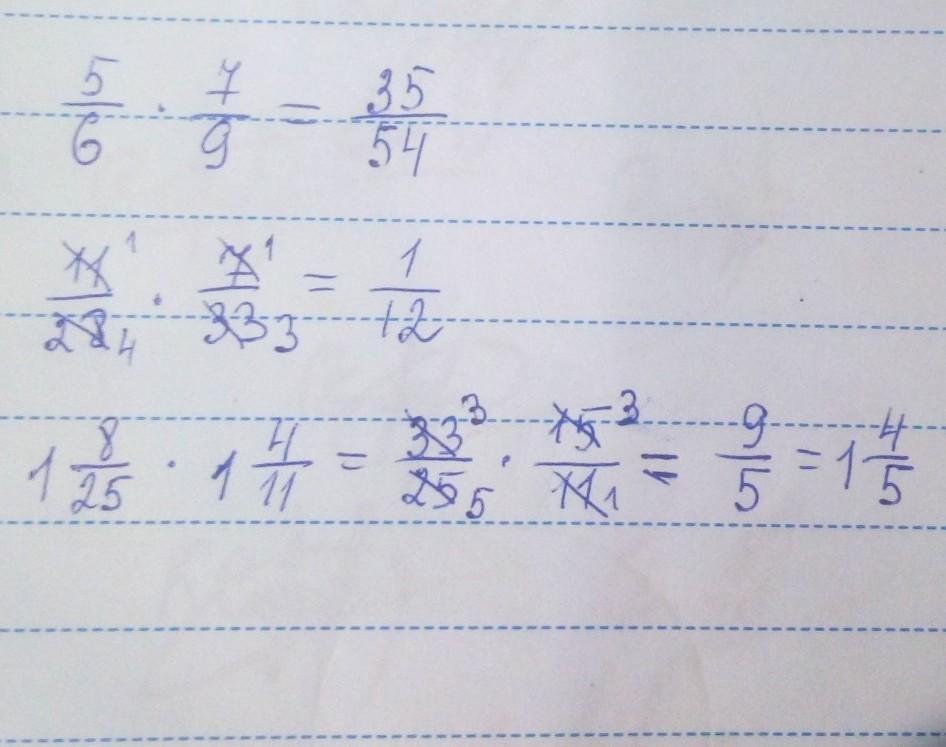 5/6 · 7/9 = 35/54
11 1/28 4 · 7 1/33 3 = 1/12
1 8/25 · 1 4/11 = 33 3/25 5 · 15 3/11 1 = 9/5 = 1 4/5